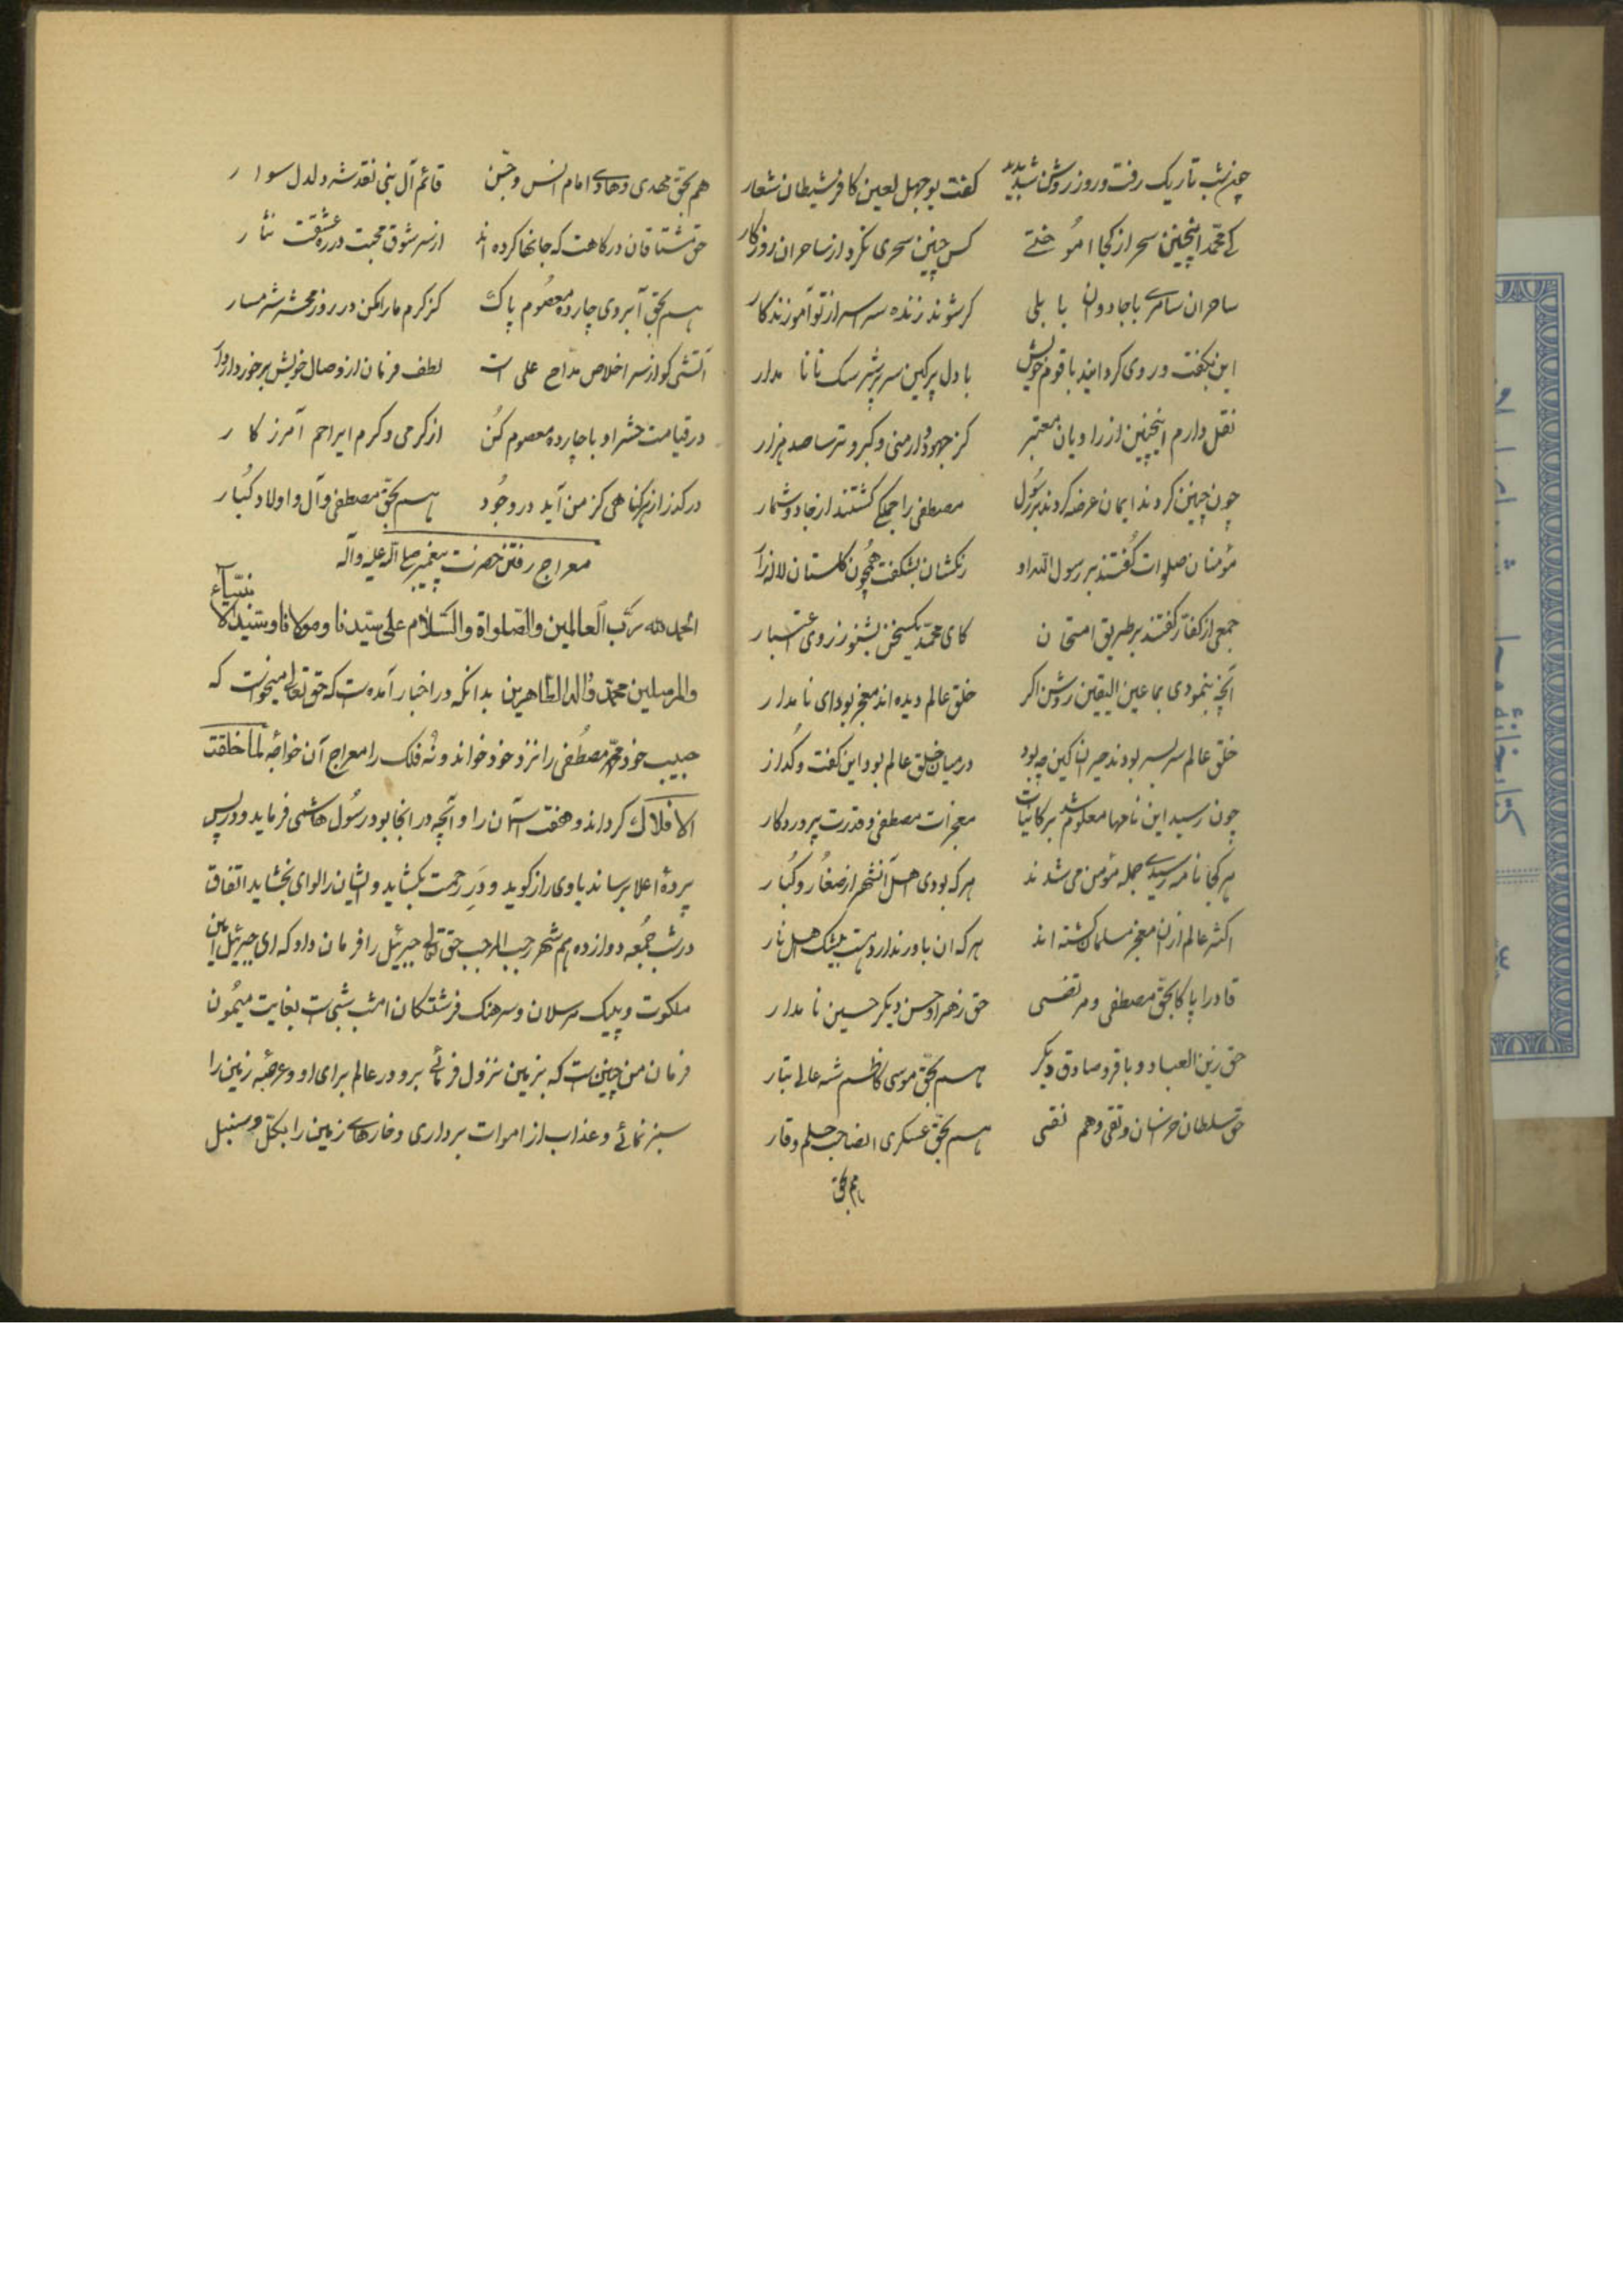 چون شب تاریک رفت و روز روشن شد پدید گفت بوجهل لعین کافر شیطان شعار
کی محمد اینچنین سحر از کجا آموختی کس چنین سحری نکرد از ساحران روزکار
ساحران سامری با جادوان بابلی کر شوند زنده سراسر از تو آموزند کار
این بکفت و روی کردانید با قوم خویش با دل پر کین سر پر شر سک نا نامدار
نقل دارم اینچنین از راویان معتبر کز جهود و ارمنی و کبر و ترسا صد هزار
چون چنین کردند ایمان عرضه کردند بر رسول مصطفی را جملکی کشتند از جاد و شمار
مؤمنان صلوات کفتند بر رسول الله او رنکشان بشکفت همچون کلستان لاله زار
جمعی از کفار کفتند بر طریق امتحان کای محمد یکسخن بشنو ز روی اعتبار
آنچه بنمودی بما عین الیقین روشن اکر خلق عالم دیده اند معجز بود ای نامدار
خلق عالم سر بسر بودند حیران کین چه بود در میان خلق عالم بود این کفت و کذار
چون رسید این نامها معلوم شد بر کائنات معجزات مصطفی و قدرت پروردکار
هر کجا نامه رسیدی جمله مؤمن می شدند هر که بودی اهل آنشهر از صغار و کبار
اکثر عالم از ان معجز مسلمان کشته اند هر که ان باور ندارد هست بیشک اهل نار
قادرا پاکا بحق مصطفی و مرتضی حق زهرا و حسن دیکر حسین نامدار
حق زین العباد و باقر و صادق دیکر هم بحق موسی کاظم شه عالی تبار
حق سلطان خراسان و تقی و هم نقی هم بحق عسکری انصاحب حلم و وقار
هم بحق
هم بحق مهدی و هادی امام انس و جن قائم آل نبی نقد شه دلدل سوار
حق مشتاقان درکاهت که جانها کرده اند از سر شوق محبت در ره عشقت نثار
هم بحق آبروی چارده معصوم پاک کز کرم ما را مکن در روز محشر شرمسار
آتشی کو از سر اخلاص مداح علی است لطف فرما از وصال خویش برخوردار دار
در قیامت حشر او با چارده معصوم کن از کرمی و کرم ایراحم آمرزکار
درکذر از هر کناهی کز من آید در وجود هم بحق مصطفی و آل و اولاد کبار
معراج رفتن حضرت پیغمبر صلی الله علیه و آله
الحمد لله رب العالمین والصلواة والسلام علی سیدنا ومولانا وسید الانبیآء
والمرسلین محمد واله الطاهرین بدانکه در اخبار آمده است که حق تعالی میخواست که
حبیب خود محمد مصطفی را نزد خود خواند و نه فلک را معراج آن خواجه لما خلقت
الافلاک کرداند و هفت آسمان را و آنچه در انجا بود رسول هاشمی فرماید و در پس
پرده اعلا برساند با وی راز کوید و در رحمت بکشاید و ایشان را لوای بخشاید اتفاق
در شب جمعه دوازدهم شهر رجب المرجب حق تعالی جبرئیل را فرمان داد که ای جبرئیل امین
ملکوت و پیک مرسلان و سرهنک فرشتکان امشب شبی است بغایت میمون
فرمان من چنین است که بزمین نزول فرمائی برو در عالم برای او و عرصه زمین را
سبز نمائی و عذاب از اموات برداری و خارهای زمین را بکل و سنبل